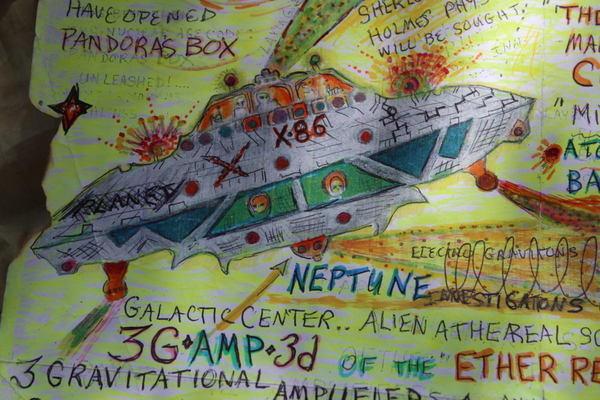 HAVE OPENED
PANDORAS BOX
UNLEASHED!....
SHERLO
HOLMES PHYS
WILL BE SOUGHT.
"TH
MA
C
"MI
ATO
BA
X-86
X
ELECTRO GRAVITONS
NEPTUNE INVESTIGATONS
GALACTIC CENTER.. ALIEN ATHEREAL
3G•AMP•3d OF THE "ETHER RE
3 GRAVITATIONAL AMPLIFIERS